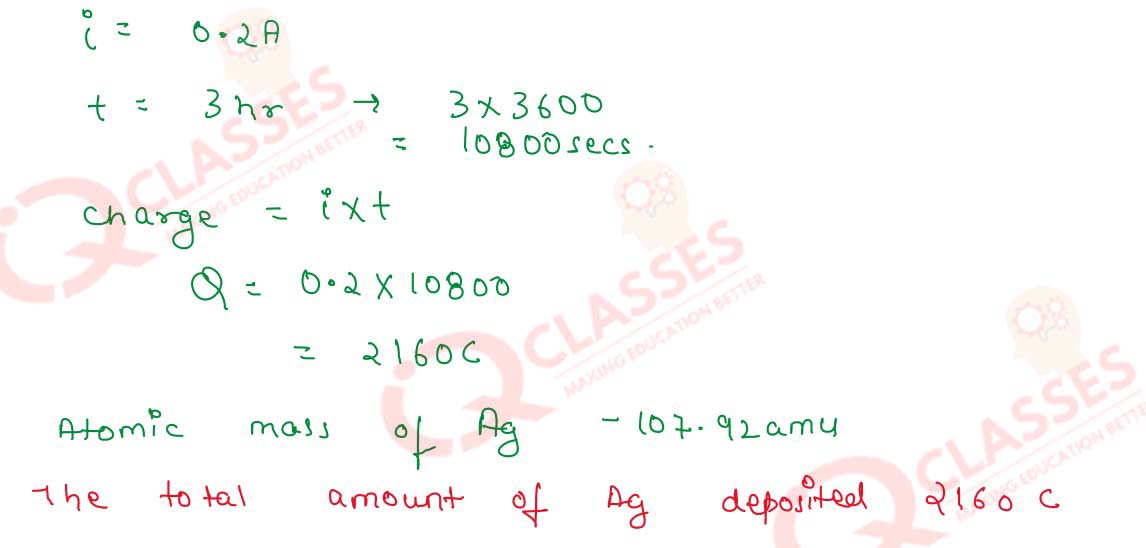 i = 0.2A
t = 3hr → 3×3600
= 10800secs.
charge = i×t
Q = 0.2×10800
= 2160C
Atomic mass of Ag - 107.92amu
The total amount of Ag deposited 2160 C
IQ CLASSES
MAKING EDUCATION BETTER
IQ CLASSES
MAKING EDUCATION BETTER
IQ CLASSES
MAKING EDUCATION BETTER